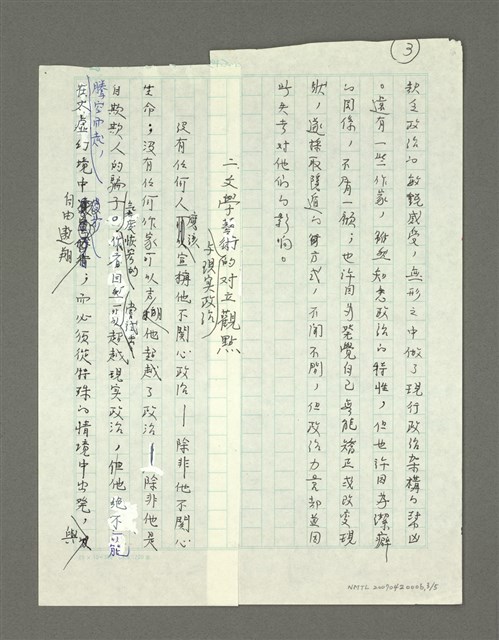 3
缺乏政治的敏銳感受，無形之中做了現行政治架構的幫凶
。還有一些作家，雖然知悉政治的特性，但也許因為潔癖
的關係，不屑一顧；也許因為發覺自己無能矯正或改變現
狀，遂採取隱遁的方式，不聞不問，但政治力量卻並因
此失去對他們的影响。
二、文學藝術与現実政治的对立觀點
沒有任何人應該宣稱他不關心政治——除非他不關心
生命；沒有任何作家可以宣稱他超越了政治——除非他是
自欺欺人的騙子。作者固然可以嘗試去超越現実政治，但他絕不可能
騰空而起，
在太虛幻境中自由遨翔；而必須從特殊的情境中出發，與
NMTL 20090420006,3/5